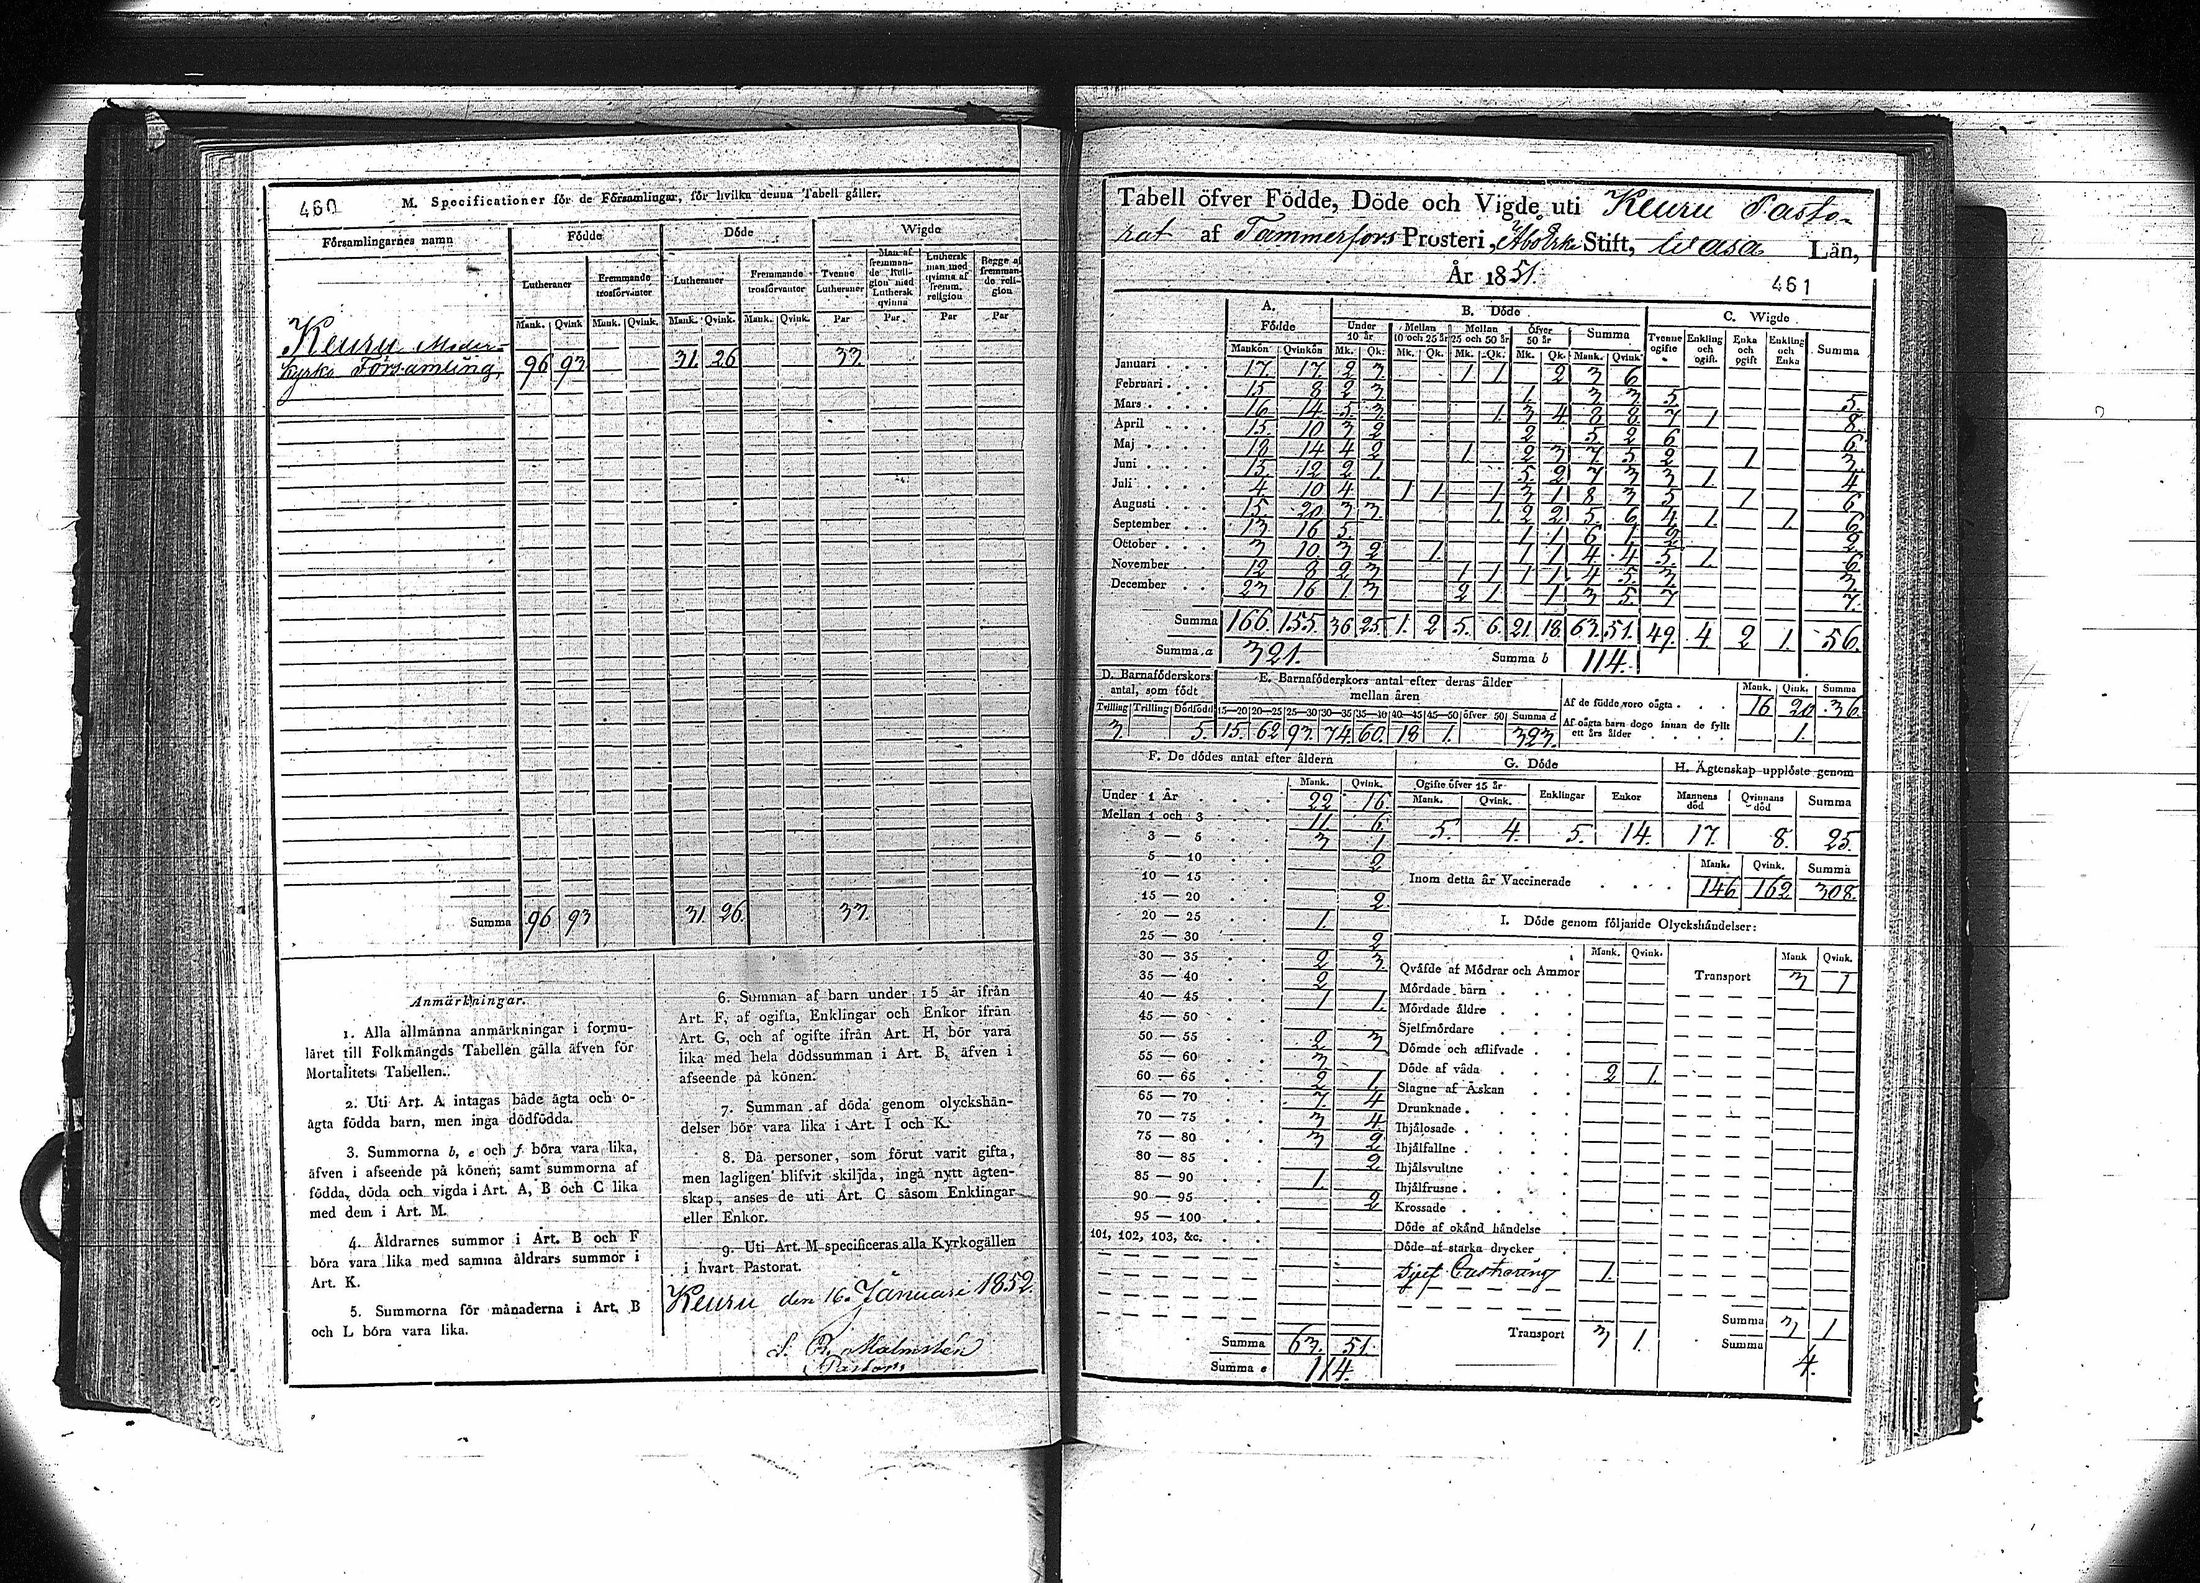 460
M. Specificationer för de Församlingar, för hvilka denna Tabell gäller.
Församlingarnes namn | Födde | Döde | Wigde
Lutheraner | Fremmande trosförvanter | Lutheraner | Fremmande trosförvanter | Tvenne Lutheraner | Man af fremmande Religion med Luthersk qvinna | Luthersk man med qvinna af fremm. religion | Begge af fremmande religion
Mank. | Qvink. | Mank. | Qvink. | Mank. | Qvink. | Mank. | Qvink. | Par | Par | Par | Par
Keuru Moder-
kyrko Församling, 96 93 31. 26 33.
Summa 96 93 31. 26. 33.
Anmärkningar.
1. Alla allmänna anmärkningar i formu-
läret till Folkmängds Tabellen gälla äfven för
Mortalitets Tabellen.
2. Uti Art. A intagas både ägta och o-
ägta födda barn, men inga dödfödda.
3. Summorna b, e och f böra vara lika,
äfven i afseende på könen; samt summorna af
födda, döda och vigda i Art. A, B och C lika
med dem i Art. M.
4. Åldrarnes summor i Art. B och F
böra vara lika med samma åldrars summor i
Art. K.
5. Summorna för månaderna i Art. B
och L böra vara lika.
6. Summan af barn under 15 år ifrån
Art. F, af ogifta, Enklingar och Enkor ifrån
Art. G, och af ogifte ifrån Art. H, bör vara
lika med hela dödssumman i Art. B, äfven i
afseende på könen.
7. Summan af döda genom olyckshän-
delser bör vara lika i Art. I och K.
8. Då personer, som förut varit gifta,
men lagligen blifvit skiljda, ingå nytt ägten-
skap, anses de uti Art. C såsom Enklingar
eller Enkor.
9. Uti Art. M specificeras alla Kyrkogällen
i hvart Pastorat.
Keuru den 16. Januari 1852.
Malmstén
Pastor
Tabell öfver Födde, Döde och Vigde uti Keuru Pasto-
rat af Tammerfors Prosteri, Åbo Erke Stift, Wasa Län,
År 1851.
461
A. Födde | B. Döde | C. Wigde
Under 10 år | Mellan 10 och 25 år | Mellan 25 och 50 år | Öfver 50 år | Summa | Tvenne ogifte | Enkling och ogift. | Enka och ogift | Enkling och Enka | Summa
Mankön | Qvinkön | Mk. | Qk. | Mk. | Qk. | Mk. | Qk. | Mk. | Qk. | Mank. | Qvink.
Januari 17. 17. 2 3. 1 1. 2 3 6
Februari 15 8 2 3 1. 3 3 5 5.
Mars 16 14 5. 3 1. 3 4 8 8. 7 1 8.
April 15. 10 3 2 2 5. 2 6 6
Maj 18 14 4 2 1. 2 3 7 5 2 1 3
Juni 15. 12 2 1. 5. 2 7 3 3 1 4
Juli 4 10 4 1 1 1 3 1 8 3 5 1 6
Augusti 15. 20 3 3 1. 2 2 5. 6 4 1. 1 6
September 13 16 5. 1 1 6 1. 2 2
October 3 10 3 2 1. 1 1 4 4 5. 1. 6
November 12 8 2 3 1 1 1 1 4 5. 3. 3.
December 23 16 1 3 2 1. 1. 3 5. 7 7.
Summa 166. 155. 36 25. 1. 2 5. 6. 21. 18. 63. 51. 49. 4 2 1. 56.
Summa a 321. Summa b 114.
D. Barnaföderskors antal, som födt
Tvilling | Trilling | Dödfödd
3. 5.
E. Barnaföderskors antal efter deras ålder mellan åren
15—20 | 20—25 | 25—30 | 30—35 | 35—40 | 40—45 | 45—50 | öfver 50 | Summa d
15. 62 93. 74. 60. 18 1. 323.
Mank. | Qink. | Summa
Af de födde voro oägta . . . 16 20 36.
Af oägta barn dogo innan de fyllt ett års ålder 1.
F. De dödes antal efter åldern
Mank. | Qvink.
Under 1 År 22 16.
Mellan 1 och 3 11. 6
3 — 5 3 1
5 — 10 2
10 — 15
15 — 20 2.
20 — 25 1.
25 — 30 2
30 — 35 2 3.
35 — 40 2
40 — 45 1 1.
45 — 50
50 — 55 2 3
55 — 60 3
60 — 65 2 1.
65 — 70 7. 4
70 — 75 3 4
75 — 80 3 2
80 — 85 2
85 — 90 1.
90 — 95 2
95 — 100
101, 102, 103, &c.
Summa 63. 51.
Summa e 114.
G. Döde
Ogifte öfver 15 år | Enklingar | Enkor
Mank. | Qvink.
5. 4. 5. 14.
H. Ägtenskap upplöste genom
Mannens död | Qvinnans död | Summa
17. 8. 25.
Mank. | Qvink. | Summa
Inom detta år Vaccinerade . . . . 146 162 308.
I. Döde genom följande Olyckshändelser:
Mank. | Qvink. | Mank | Qvink.
Qväfde af Mödrar och Ammor
Transport 3 1
Mördade barn
Mördade äldre
Sjelfmördare
Dömde och aflifvade
Döde af våda 2 1.
Slagne af Åskan
Drunknade
Ihjälosade
Ihjälfallne
Ihjälsvultne
Ihjälfrusne
Krossade
Döde af okänd händelse
Döde af starka drycker
1.
Transport 3 1.
Summa 3 1
Summa 4.